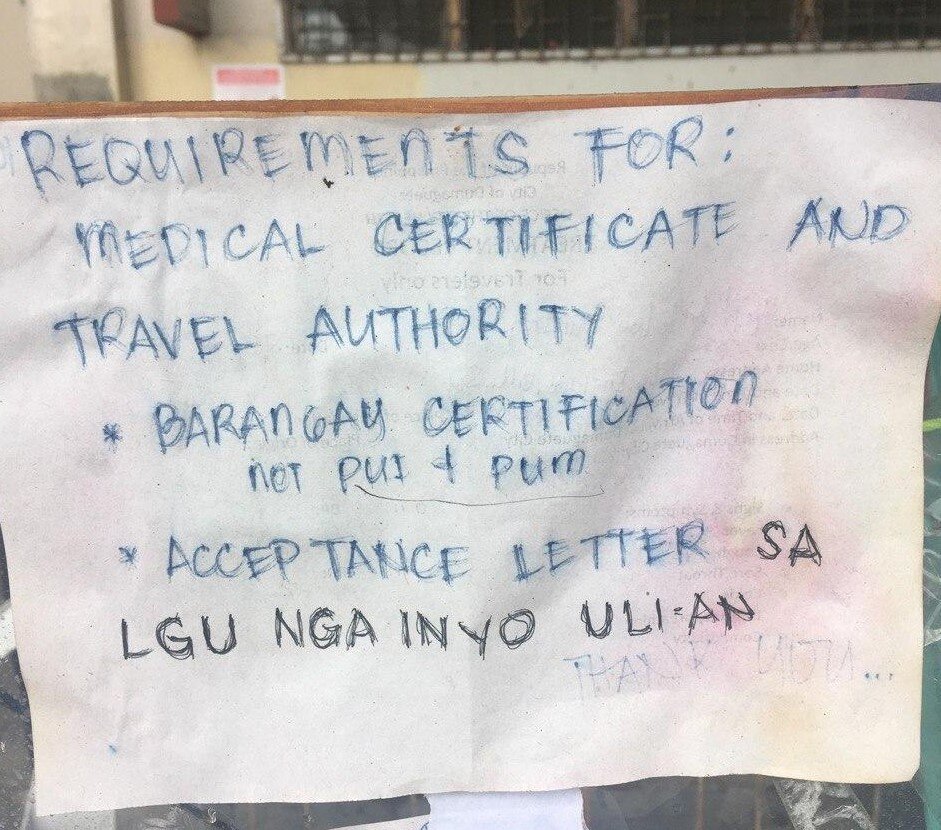 REQUIREMENTS FOR:
MEDICAL CERTIFICATE AND
TRAVEL AUTHORITY
* BARANGAY CERTIFICATION
NOT PUI & PUM
* ACCEPTANCE LETTER SA
LGU NGA INYO ULI-AN
THANK YOU...